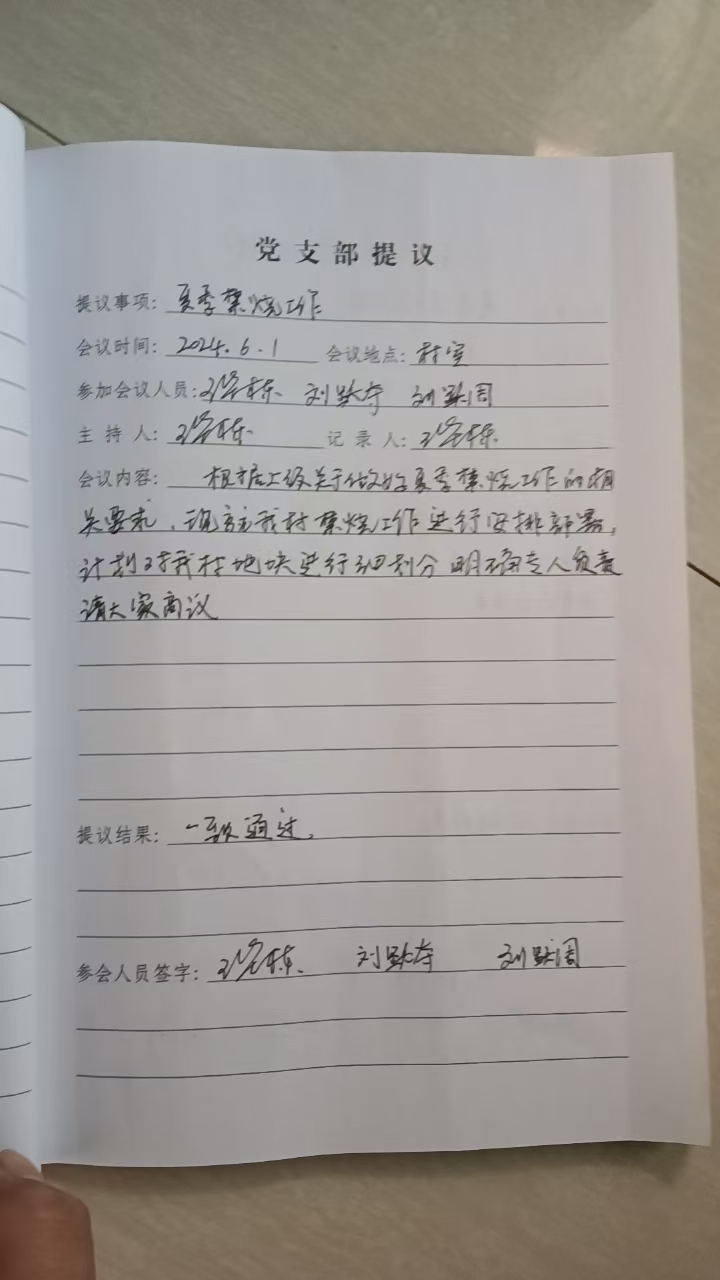 党支部提议
提议事项：夏季禁烧工作
会议时间：2024.6.1 会议地点：村室
参加会议人员：刘跃周
主持人：
记录人：
会议内容：根据上级关于做好夏季禁烧工作的相
关要求，现就我村禁烧工作进行安排部署，
计划对我村地块进行细划分 明确专人负责
请大家商议
提议结果：一致通过.
参会人员签字：刘跃周